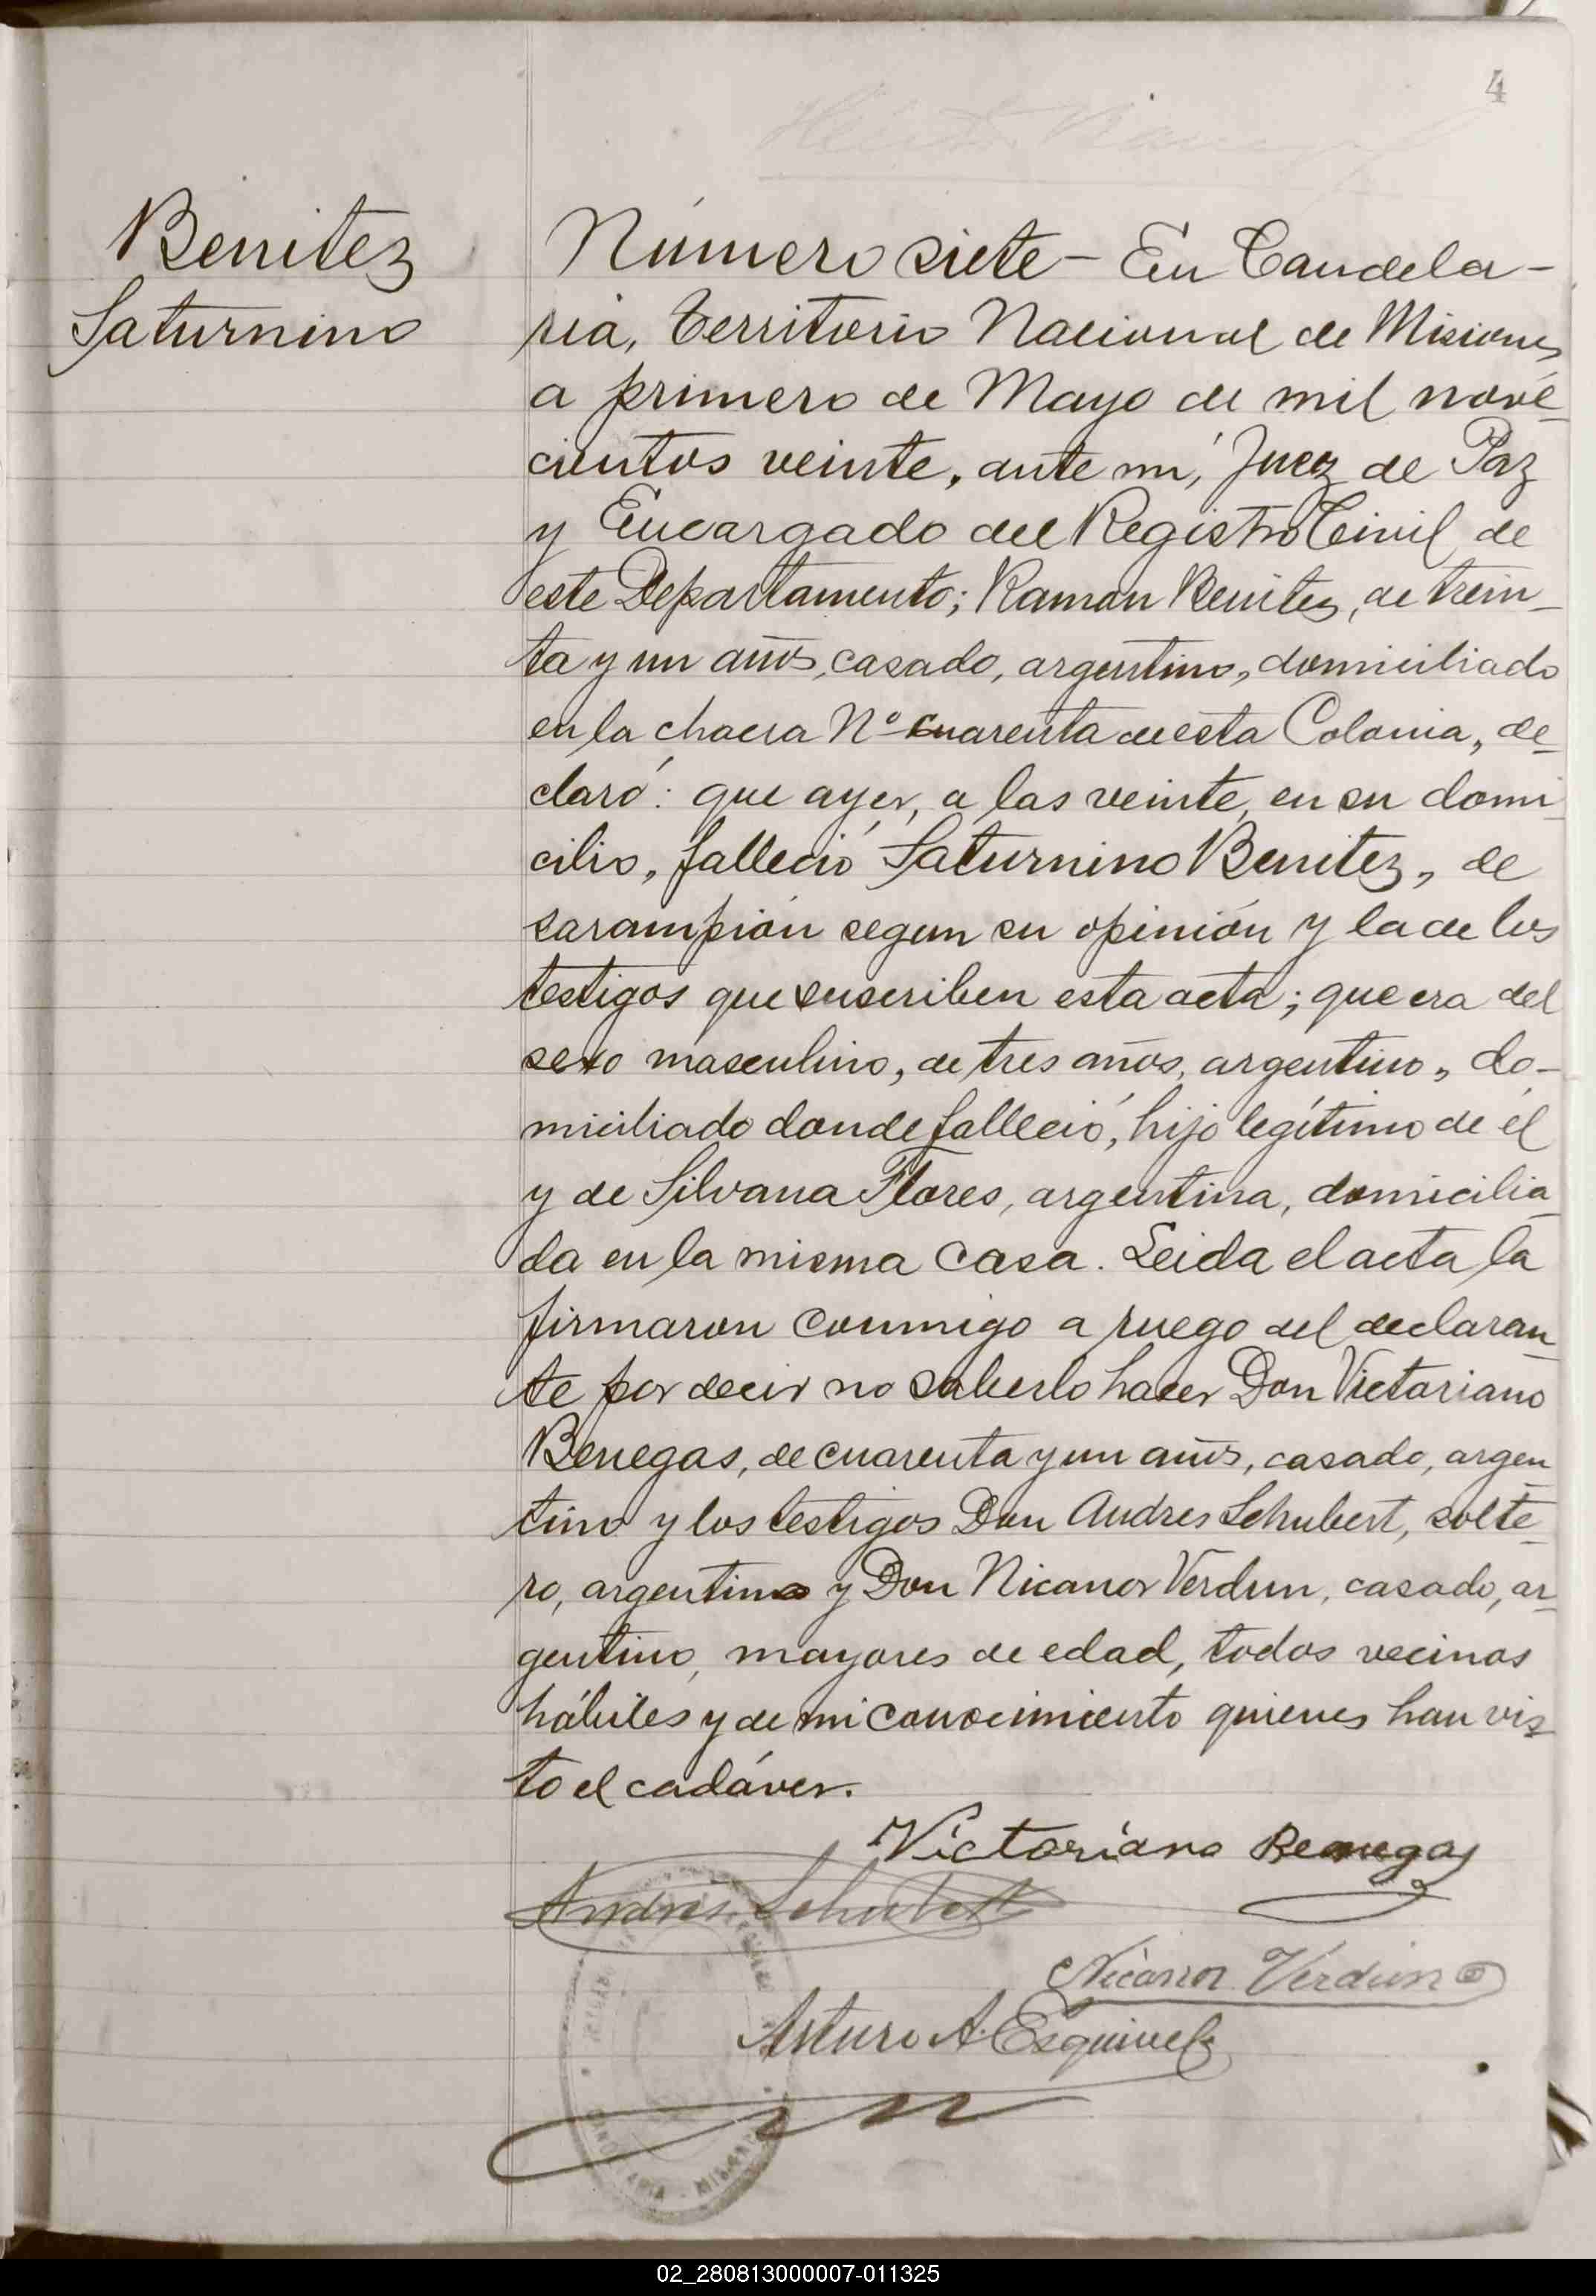 4
Benitez
Saturnino
Número siete - En Candela-
ria, Territorio Nacional de Misiones
a primero de Mayo de mil nove-
cientos veinte, ante mí, Juez de Paz
y Encargado del Registro Civil de
este Departamento; Ramon Benitez, de trein-
ta y un años, casado, argentino, domiciliado
en la chacra Nº cuarenta de esta Colonia, de-
claró: que ayer, a las veinte, en su domi-
cilio, falleció Saturnino Benitez, de
sarampión segun su opinión y la de los
testigos que suscriben esta acta; que era del
sexo masculino, de tres años, argentino, do-
miciliado donde falleció, hijo legítimo de él
y de Silvana Flores, argentina, domicilia-
da en la misma casa. Leida el acta la
firmaron conmigo a ruego del declaran-
te por decir no saberlo hacer Don Victoriano
Benegas, de cuarenta y un años, casado, argen-
tino y los testigos Don Andres Schubert, solte-
ro, argentino y Don Nicanor Verdun, casado, ar-
gentino, mayores de edad, todos vecinos
hábiles y de mi conocimiento quienes han vis-
to el cadáver.
Victoriano Benegas
Andrés Schubert
Nicanor Verdun
Arturo A. Esquivel
02_280813000007-011325